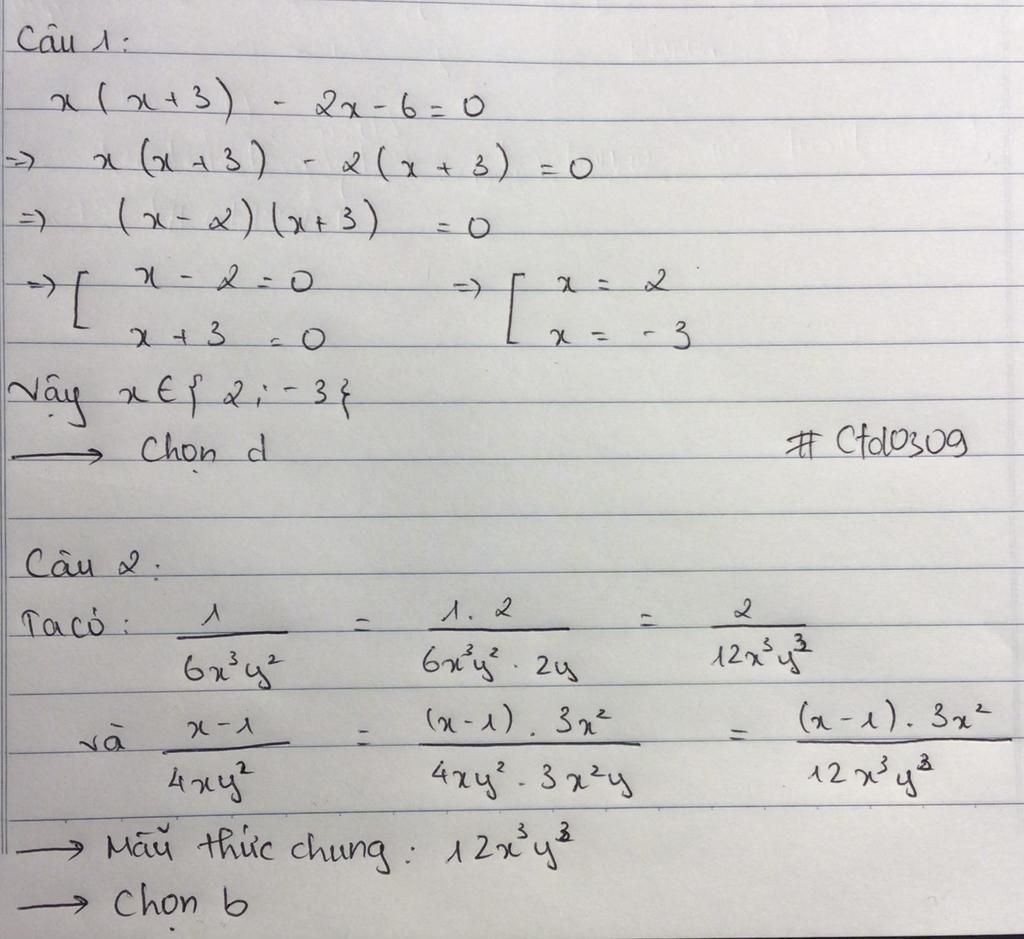 Câu 1:
x(x+3) - 2x-6=0
=> x(x+3) - 2(x+3) =0
=> (x-2)(x+3) =0
=> [ x-2=0 => [ x = 2
x+3 =0 x = -3
Vậy x∈{2;-3}
→ Chọn d # Ctd0309
Câu 2:
Ta có: 1/6x³y² = 1.2/6x³y².2y = 2/12x³y³
và x-1/4xy² = (x-1).3x²/4xy².3x²y = (x-1).3x²/12x³y³
→ Mẫu thức chung: 12x³y³
→ Chọn b